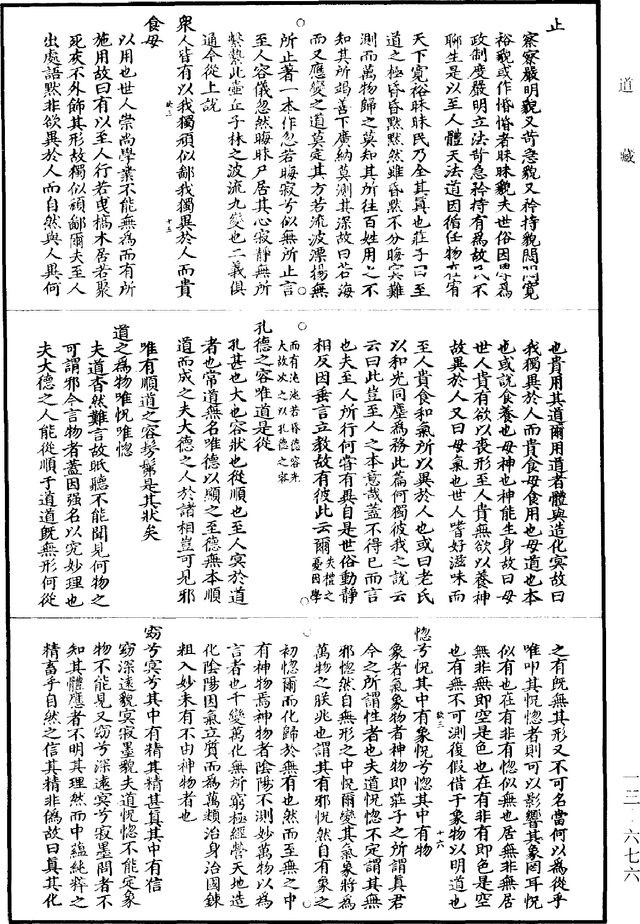 道藏
一三·六七六
止
察察嚴明貌又苛急貌又衿持貌悶悶寬
裕貌或作惛惛者昧昧貌夫世俗因愚為
政制度嚴明立法苛急衿持有為故民不
聊生是以至人體天法道因循任物在宥
天下寬裕昧昧民乃全其真也莊子曰至
道之極昏昏默默然雖昏默不分晦冥難
測而萬物歸之莫知其所往百姓用之不
知其所竭善下廣納莫測其深故曰若海
而又應變之道莫定其方若流波漂揚無
所止著一本作忽若晦寂兮似無所止言
至人容儀忽然晦昧尸居其心寂靜無所
繫縶此壺丘子林之波流九變也二義俱
通今從上說
眾人皆有以我獨頑似鄙我獨異於人而貴
食母
以用也世人崇尚學業不能無為而有所
施用故曰有以至人行若曳槁木居若聚
死灰不外飾其形故獨似頑鄙爾夫至人
出處語默非欲異於人而自然與人異何
也貴用其道爾用道者體與造化冥故曰
我獨異於人而貴食母食用也母道也本
也或說食養也母神也神能生身故曰母
世人貴有欲以喪形至人貴無欲以養神
故異於人又曰母氣也世人嗜好滋味而
至人貴食和氣所以異於人也或曰老氏
以和光同塵為務此篇何獨彼我之說云
云曰此豈至人之本意哉蓋不得已而言
也夫至人所行何嘗有異自是世俗動靜
相反因垂言立教故有彼此云爾
孔德之容唯道是從
孔甚也大也容狀也從順也至人冥於道
者也常道無名唯德以顯之至德無本順
道而成之夫大德之人於諸相豈可見邪
唯有順道之容髣髴是其狀矣
道之為物唯怳唯惚
夫道杳然難言故眂聽不能聞見何物之
可謂邪今言物者蓋因強名以究妙理也
夫大德之人能從順于道道既無形何從
之有既無其形又不可名當何以為從乎
唯叩其怳惚者則可以影響其象罔耳怳
似有也在有非有惚似無也居無非無居
無非無即空是色也在有非有即色是空
也有無不可測復假借于象物以明道也
惚兮怳其中有象怳兮惚其中有物
象者氣象物者神物即莊子之所謂真君
今之所謂性者也夫道怳惚不定謂其無
邪惚然自無形之中怳爾變其氣象將為
萬物之朕兆也謂其有邪怳然自有象之
初惚爾而化歸於無有也然而至無之中
有神物焉神物者陰陽不測妙萬物以為
言者也千變萬化無所窮極經營天地造
化陰陽因氣立質而為萬類治身治國鍊
粗入妙未有不由神物者也
窈兮冥兮其中有精其精甚真其中有信
窈深遠貌冥寂墨貌夫道怳惚不能定象
物不能見又窈兮深遠冥兮寂墨問者不
知其體應者不明其理然而中蘊純粹之
精畜乎自然之信其精非偽故曰真其化